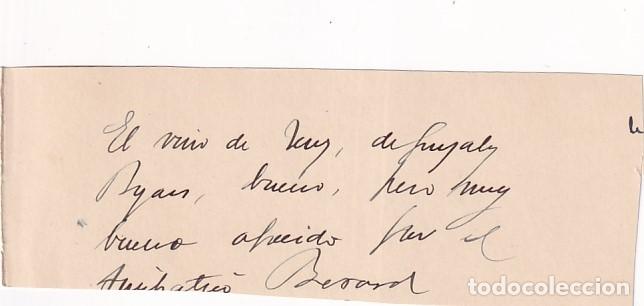 El vino de Jerez, de Gonzalez
Byass, bueno, pero muy
bueno ofrecido por el
Besard
todocoleccion.net